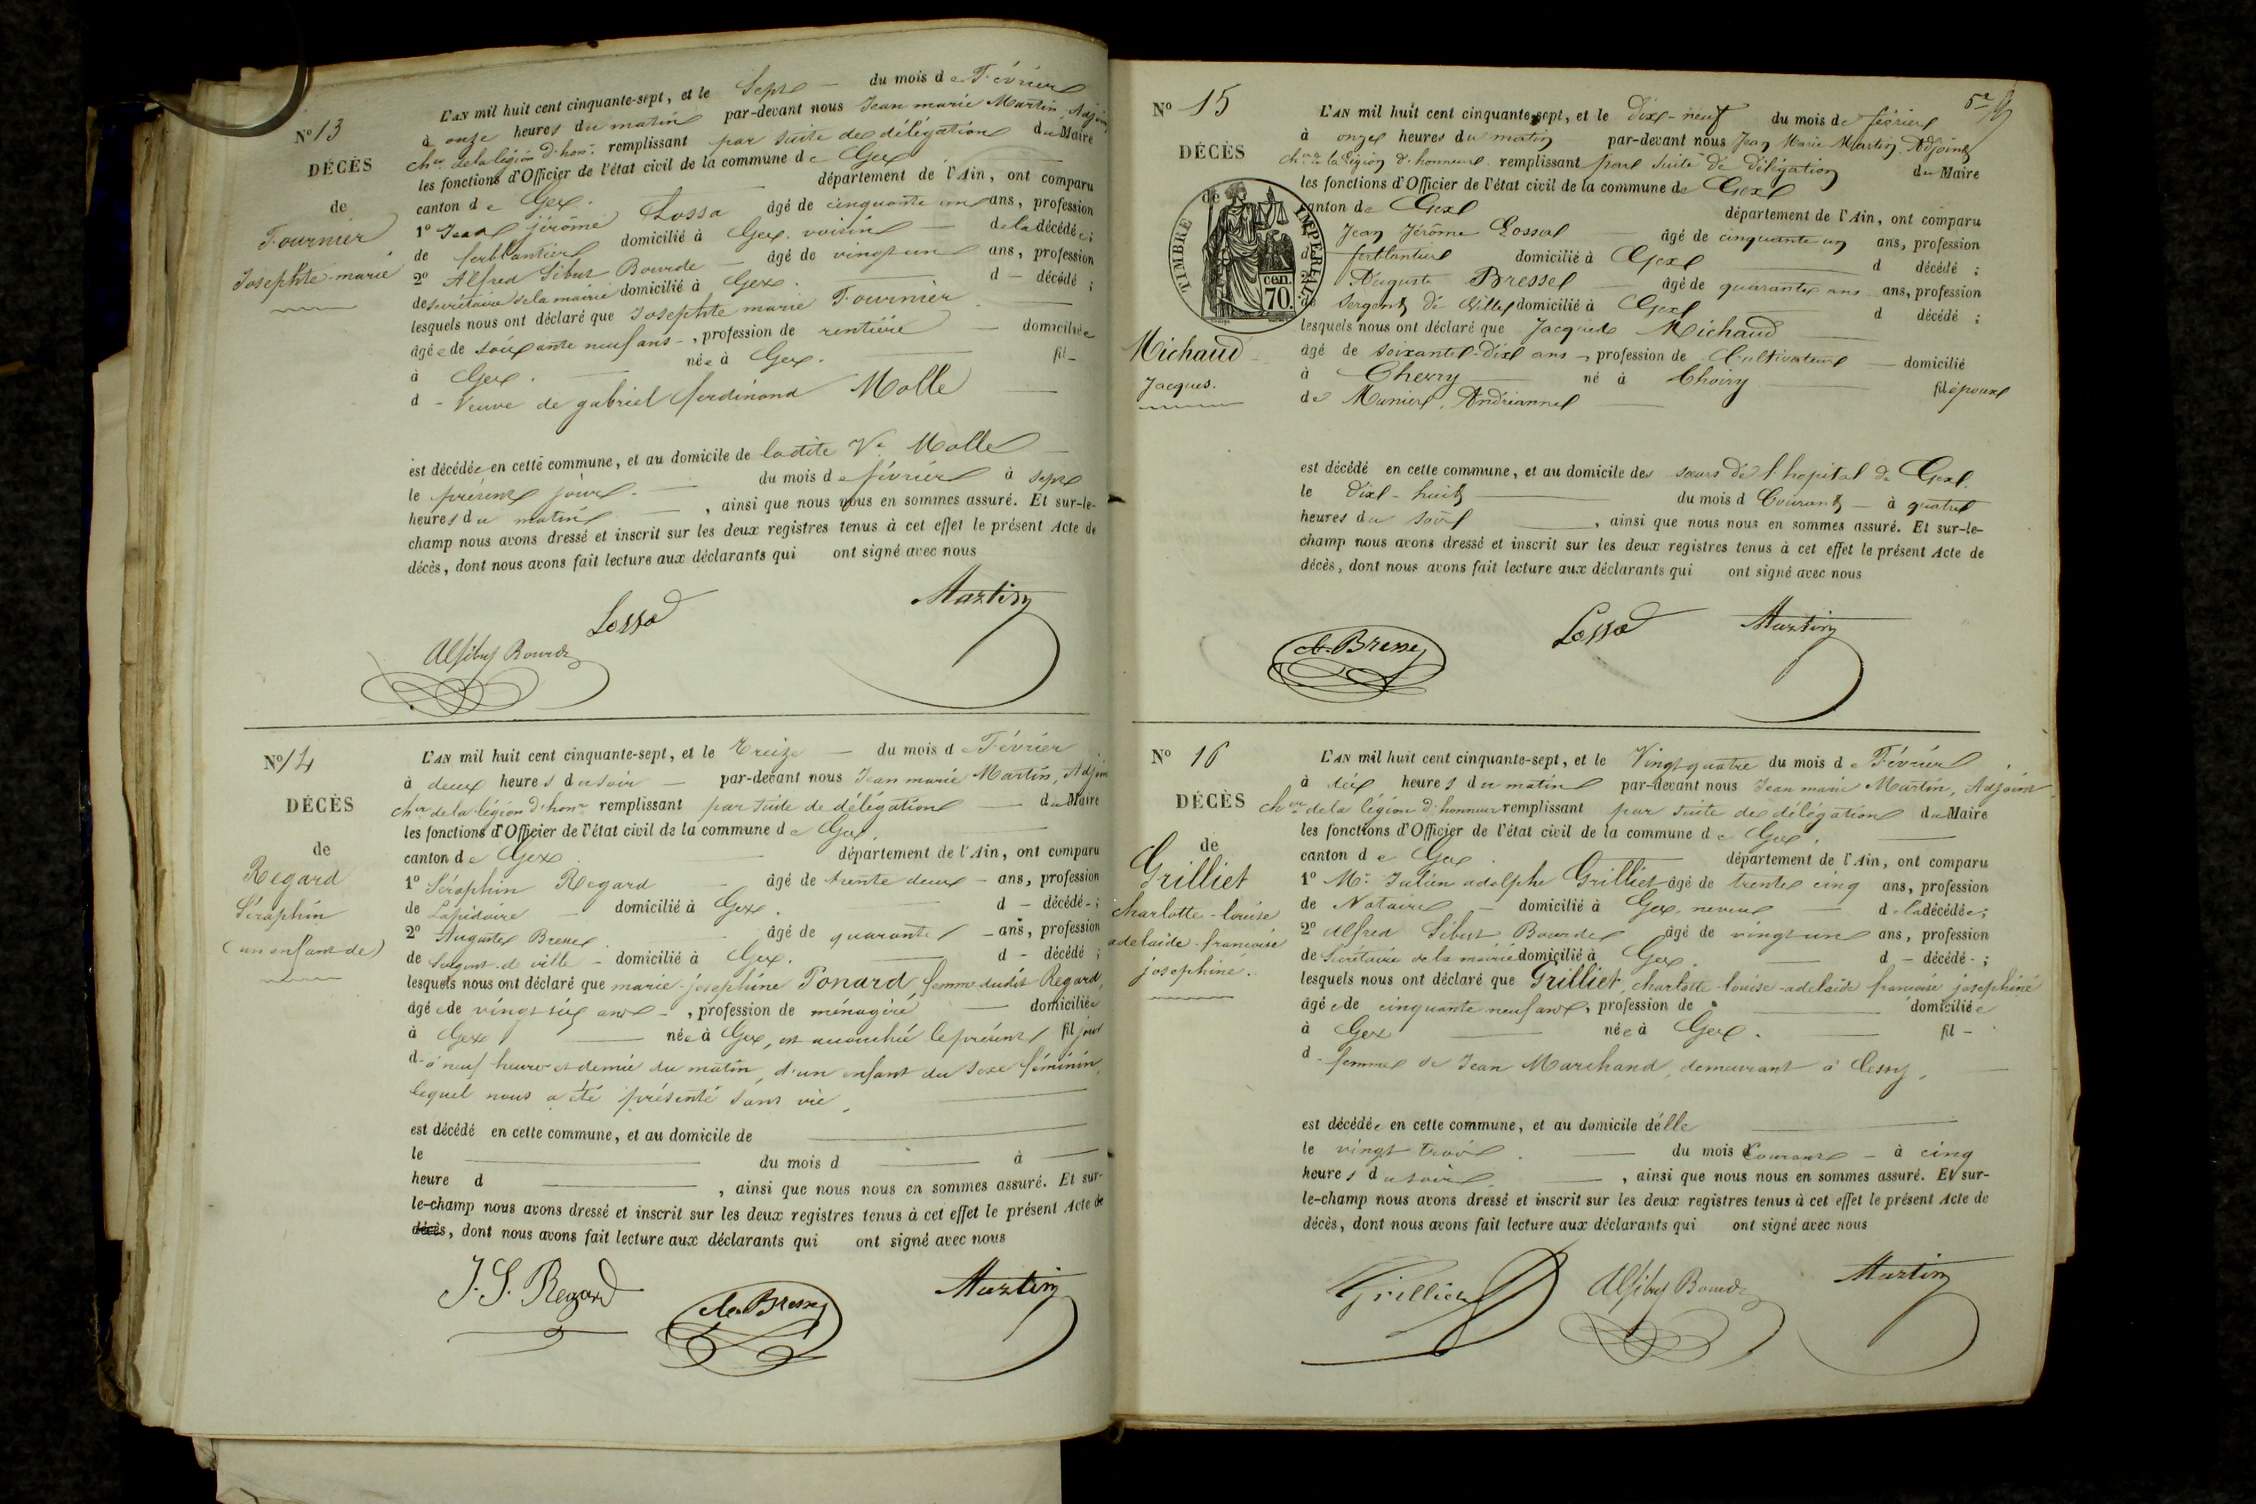 N° 13
DÉCÈS
de
Fournier
Josephte-marie
L'AN mil huit cent cinquante-sept, et le Sept — du mois de Février
à onze heures du matin par-devant nous Jean marie Martin, Adjoint
cher de la légion d'honr remplissant par suite de délégation du Maire
les fonctions d'Officier de l'état civil de la commune de Gex
canton de Gex. département de l'Ain, ont comparu
1° Jean jérôme Lossa âgé de cinquante un ans, profession
de ferblantier domicilié à Gex. voisin — de la décédée;
2° Alfred Sibut Bourde — âgé de vingt un ans, profession
de secrétaire de la mairie domicilié à Gex. d — décédé;
lesquels nous ont déclaré que Josephte marie Fournier
âgée de soixante neuf ans -, profession de rentière — domiciliée
à Gex. née à Gex. fil -
d - Veuve de gabriel ferdinand Molle
est décédée en cette commune, et au domicile de ladite Ve Molle
le présent jour. — du mois de février à sept
heures du matin —, ainsi que nous nous en sommes assuré. Et sur-le-
champ nous avons dressé et inscrit sur les deux registres tenus à cet effet le présent Acte de
décès, dont nous avons fait lecture aux déclarants qui ont signé avec nous
Martin
Lossa
Alf Sibut Bourde
N° 14
DÉCÈS
de
Regard
Séraphin
(un enfant de)
L'AN mil huit cent cinquante-sept, et le Treize — du mois de Février
à deux heures du soir — par-devant nous Jean marie Martin, Adjoint
cher de la légion d'honr remplissant par suite de délégation — du Maire
les fonctions d'Officier de l'état civil de la commune de Gex.
canton de Gex. département de l'Ain, ont comparu
1° Séraphin Regard — âgé de trente deux - ans, profession
de Lapidaire — domicilié à Gex. d — décédé -;
2° Auguste Bressel âgé de quarante - ans, profession
de Sergent de ville - domicilié à Gex. d - décédé;
lesquels nous ont déclaré que marie-josephine Ponard, femme dudit Regard,
âgée de vingt six ans -, profession de ménagère — domiciliée
à Gex née à Gex, est accouchée le présent fil jour
d - à neuf heures et demie du matin, d'un enfant du sexe féminin,
lequel nous a été présenté sans vie,
est décédé en cette commune, et au domicile de
le du mois d à
heure d , ainsi que nous nous en sommes assuré. Et sur-
le-champ nous avons dressé et inscrit sur les deux registres tenus à cet effet le présent Acte de
décès, dont nous avons fait lecture aux déclarants qui ont signé avec nous
J. S. Regard
Martin
A. Bressel
N° 15
DÉCÈS
de
TIMBRE IMPERIAL
70 cen.
Michaud
Jacques.
L'AN mil huit cent cinquante-sept, et le Dix-neuf du mois de février
à onze heures du matin par-devant nous Jean Marie Martin. Adjoint
cher de la Légion d'honneur remplissant par suite de délégation du Maire
les fonctions d'Officier de l'état civil de la commune de Gex
canton de Gex département de l'Ain, ont comparu
Jean Jérôme Lossa — âgé de cinquante un ans, profession
de ferblantier domicilié à Gex d décédé;
2° Auguste Bressel — âgé de quarante ans ans, profession
de Sergent de Ville domicilié à Gex d décédé;
lesquels nous ont déclaré que Jacques Michaud
âgé de soixante-dix ans -, profession de Cultivateur — domicilié
à Chevry né à Chevry fil époux
de Munier, Andrianne
est décédé en cette commune, et au domicile des sœurs de l'hopital de Gex.
le Dix-huit du mois d Courant — à quatre
heures du soir —, ainsi que nous nous en sommes assuré. Et sur-le-
champ nous avons dressé et inscrit sur les deux registres tenus à cet effet le présent Acte de
décès, dont nous avons fait lecture aux déclarants qui ont signé avec nous
A. Bressel
Lossa
Martin
N° 16
DÉCÈS
de
Grilliet
charlotte-louise
adelaide-francoise
josephine.
L'AN mil huit cent cinquante-sept, et le Vingt quatre du mois de Février
à dix heures du matin par-devant nous Jean marie Martin, Adjoint
cher de la légion d'honneur remplissant par suite de délégation du Maire
les fonctions d'Officier de l'état civil de la commune de Gex.
canton de Gex. département de l'Ain, ont comparu
1° Mr Julien adolphe Grilliet âgé de trente cinq ans, profession
de Notaire — domicilié à Gex, neveu — de la décédée;
2° Alfred Sibut Bourde âgé de vingt un ans, profession
de Secrétaire de la mairie domicilié à Gex. d — décédé -;
lesquels nous ont déclaré que Grilliet, charlotte-louise-adelaide francoise josephine
âgée de cinquante neuf ans, profession de domiciliée
à Gex née à Gex. fil -
d - femme de Jean Marchand, demeurant à Cessy,
est décédée en cette commune, et au domicile d'elle
le vingt trois. — du mois courant — à cinq
heures du soir —, ainsi que nous nous en sommes assuré. Et sur-
le-champ nous avons dressé et inscrit sur les deux registres tenus à cet effet le présent Acte de
décès, dont nous avons fait lecture aux déclarants qui ont signé avec nous
Grilliet
Alf Sibut Bourde
Martin